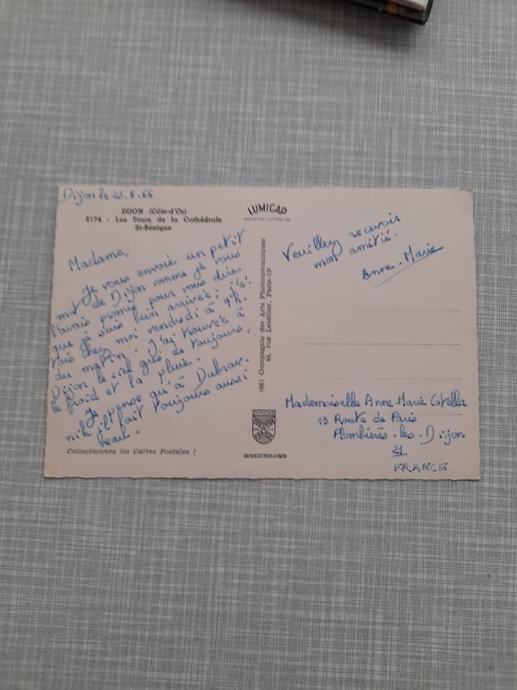 Dijon le 23.8.66
DIJON (Côte-d'Or)
2174 - Les Tours de la Cathédrale
St-Bénigne
LUMICAP
Madame,
Je vous envoie un petit
mot de Dijon comme je vous
l'avais promis pour vous dire
que je suis bien arrivée: j'é-
tais chez moi vendredi à 9h.
du matin. J'ai trouvé à
Dijon le ciel gris de toujours,
le froid et la pluie.
Je pense qu'à Dubrov-
nik il fait toujours aussi
beau.
Collectionnez les Cartes Postales !
(66) Compagnie des Arts Photomécaniques
44, rue Letellier, Paris-15e
MEXICHROME
Veuillez recevoir
mon amitié.
Anne-Marie
Mademoiselle Anne-Marie
13 Route de Paris
Plombières-les-Dijon
21
FRANCE